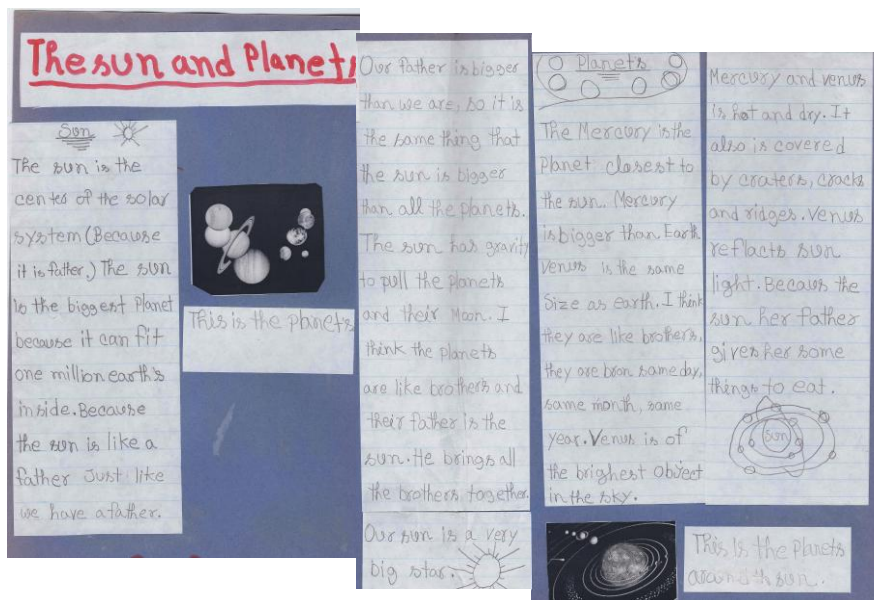 The sun and Planets
Sun
The sun is the
center of the solar
system (Because
it is father.) The sun
is the biggest Planet
because it can fit
one million earth's
inside. Because
the sun is like a
father Just like
we have a father.
This is the planets
Our father is bigger
than we are, so it is
the same thing that
the sun is bigger
than all the planets.
The sun has gravity
to pull the planets
and their Moon. I
think the planets
are like brothers and
their father is the
sun. He brings all
the brothers together.
Our sun is a very
big star.
Planets
The Mercury is the
Planet closest to
the sun. Mercury
is bigger than Earth
Venus is the same
Size as earth. I think
they are like brothers,
they are bron same day,
same month, same
year. Venus is of
the brighest object
in the sky.
Mercury and venus
is hot and dry. It
also is covered
by craters, cracks
and ridges. Venus
reflacts sun
light. Becaus the
sun her father
gives her some
things to eat.
Sun
This Is the Planets
around the sun.